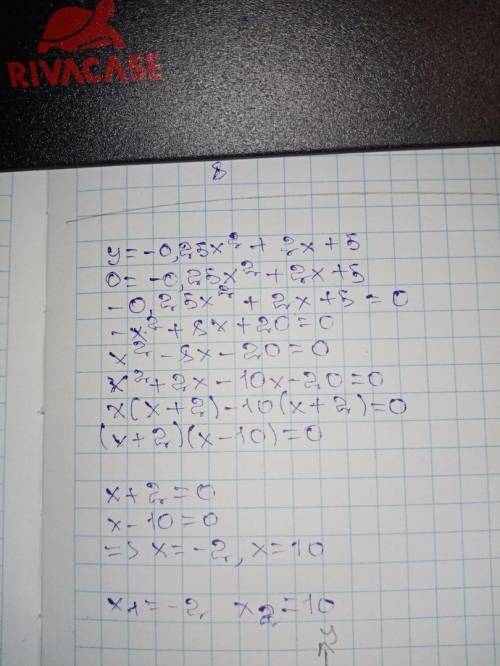 RIVACASE
8
y = -0,25x² + 2x + 5
0 = -0,25x² + 2x + 5
-0,25x² + 2x + 5 = 0
-x² + 8x + 20 = 0
x² - 8x - 20 = 0
x² + 2x - 10x - 20 = 0
x(x + 2) - 10(x + 2) = 0
(x + 2)(x - 10) = 0
x + 2 = 0
x - 10 = 0
=> x = -2, x = 10
x₁ = -2, x₂ = 10